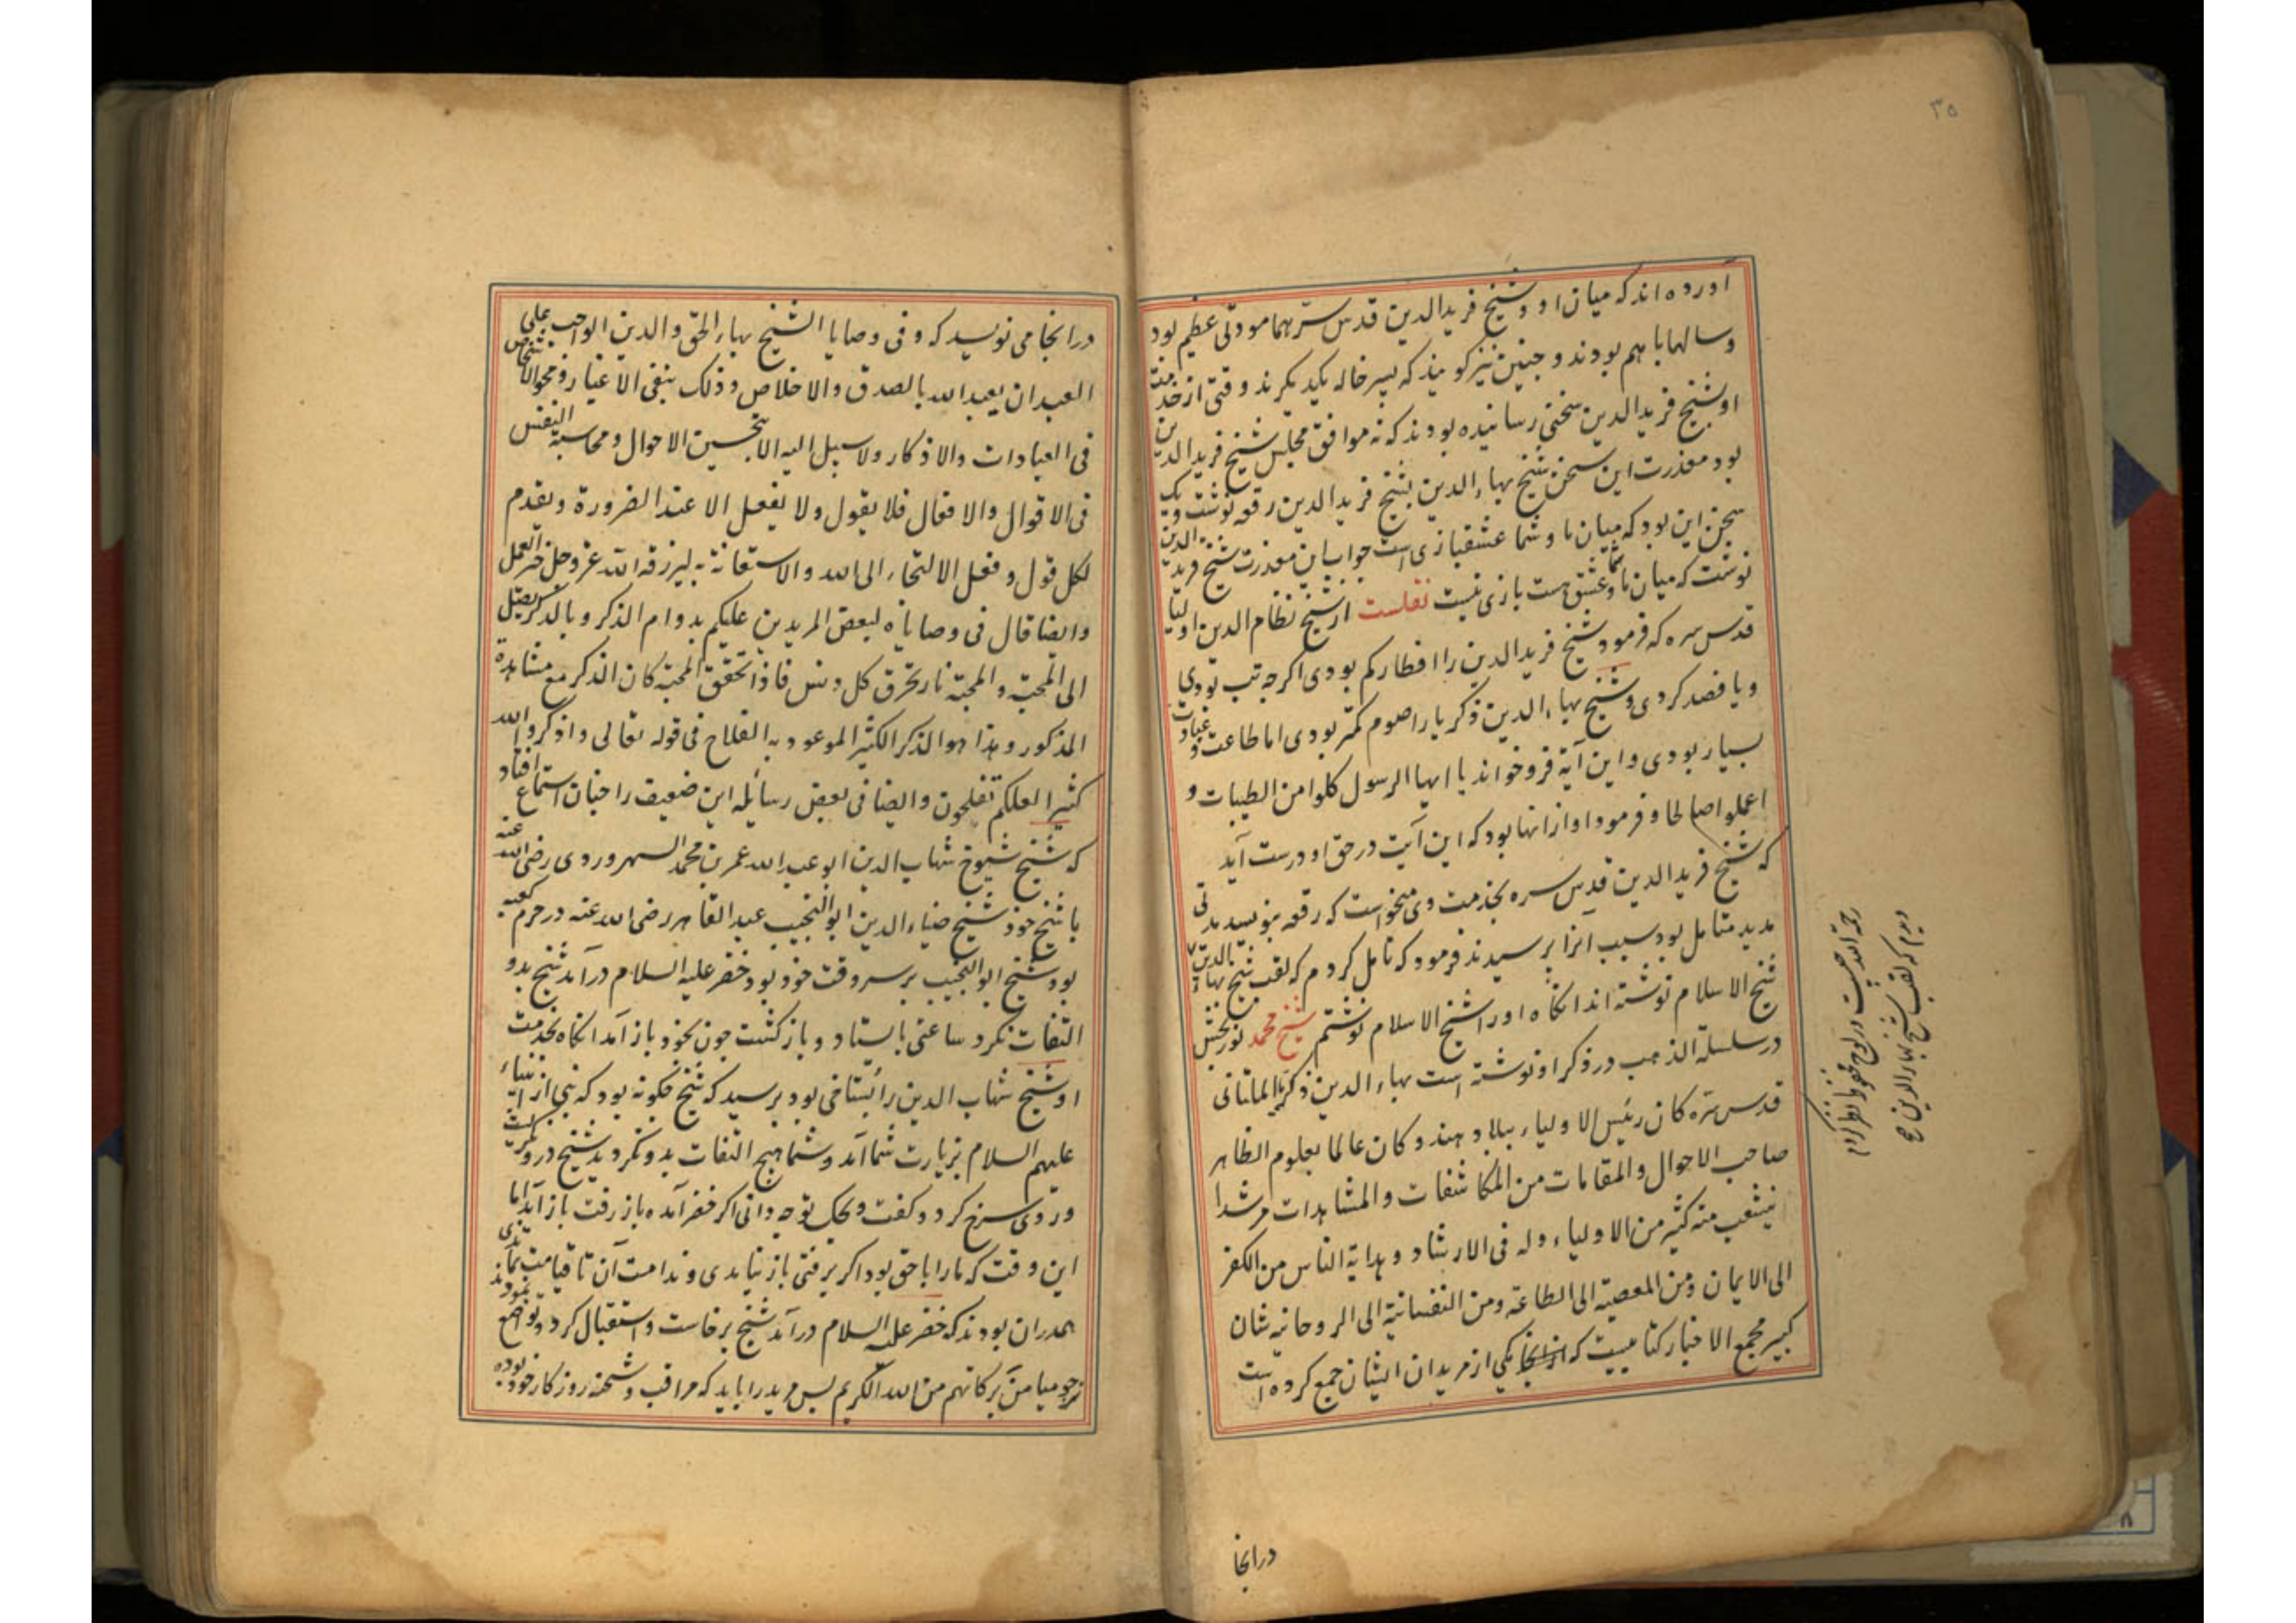 ۳۵
آورده اند که میان او و شیخ فرید الدین قدس سرهما مودتی عظیم بود
و سالها با هم بودند و چنین نیز گویند که پسر خاله یکدیگرند وقتی از خدمت
او شیخ فرید الدین سخنی رسانیده بودند که نه موافق مجلس شیخ فرید الدین
بود معذرت این سخن شیخ بهاء الدین بشیخ فرید الدین رقعه نوشت و یک
سخن این بود که میان ما و شما عشقبازی است جواب این معذرت شیخ فرید الدین
نوشت که میان ما و شما عشق هست بازی نیست نقلست از شیخ نظام الدین اولیا
قدس سره که فرمود شیخ فرید الدین را افطار کم بودی اگرچه تب بودی
و یا فصد کردی و شیخ بهاء الدین ذکریا را صوم کمتر بودی اما طاعت و عبادت
بسیار بودی و این آیة فرو خواند یا ایها الرسل کلوا من الطیبات و
اعملوا صالحا و فرمود او از انها بود که این آیت در حق او درست آید
که شیخ فرید الدین قدس سره بخدمت وی میخواست که رقعه بنویسد مدتی
مدید متامل بود سبب آنرا پرسیدند فرمود که تامل کردم که لقب شیخ بهاء الدین
شیخ الاسلام نوشته اند انگاه او را شیخ الاسلام نوشتم شیخ محمد نوربخش
در سلسلة الذهب در ذکر او نوشته است بهاء الدین ذکریا الملتانی
قدس سره کان رئیس الاولیاء ببلاد هند و کان عالما بعلوم الظاهر
صاحب الاحوال والمقامات من المکاشفات والمشاهدات مرشدا
ینشعب منه کثیر من الاولیاء وله فی الارشاد و هدایة الناس من الکفر
الی الایمان ومن المعصیة الی الطاعة ومن النفسانیة الی الروحانیة شان
کبیر مجمع الاخبار کتابیست که یکی از مریدان ایشان جمع کرده است
درانجا
رحمة الله چیست در لوح محفوظ نظر کردم
دیدم که لقب شیخ بهاء الدین
درانجا می نویسد که و فی وصایا الشیخ بهاء الحق والدین الواجب علی
العبد ان یعبد الله بالصدق والاخلاص وذلک بنفی الاغیار و محو الاشخاص
فی العبادات والاذکار ولا سبیل الیه الا بتحسین الاحوال و محاسبة النفس
فی الاقوال والافعال فلا یقول ولا یفعل الا عند الضرورة ویقدم
لکل قول و فعل الالتجاء الی الله والاستعانة به لیرزقه الله عز وجل خیر العمل
وایضا قال فی وصایاه لبعض المریدین علیکم بدوام الذکر و بالذکر یصل
الی المحبة والمحبة نار تحرق کل دنس فاذا تحقق المحبة کان الذکر مع مشاهدة
المذکور وهذا هو الذکر الکثیر الموعود به الفلاح فی قوله تعالی واذکروا الله
کثیرا لعلکم تفلحون وایضا فی بعض رسائله این ضعیف را چنان استماع افتاد
که شیخ شیوخ شهاب الدین ابو عبد الله عمر بن محمد السهروردی رضی الله عنه
با شیخ خود شیخ ضیاء الدین ابو النجیب عبد القاهر رضی الله عنه در حرم کعبه
بود شیخ ابو النجیب بر سر وقت خود بود خضر علیه السلام درآمد شیخ بدو
التفات نکرد ساعتی بایستاد و بازگشت چون بخود باز آمد انگاه بخدمت
او شیخ شهاب الدین را بود پرسید که شیخ چگونه بود که نبی از انبیاء
علیهم السلام بزیارت شما آمد و شما هیچ التفات بدو نکردید شیخ درو نگریست
و روی سرخ کرد و گفت ویحک تو چه دانی اگر خضر آمده باز رفت باز آید اما
این وقت که ما را با حق بود اگر برفتی باز نیایدی و ندامت آن تا قیامت بماندی
همدران بودند که خضر علیه السلام درآمد شیخ برخاست و استقبال کرد و تواضع نمودند
نرجو میامن برکاتهم من الله الکریم پس مرید را باید که مراقب و شحنه روزگار خود بوده